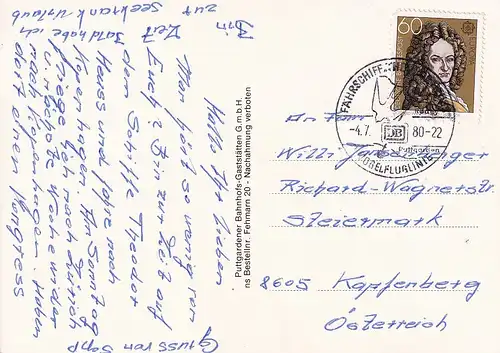 Bin
zur
Zeit
seekrank Urlaub
Hallo Ihr Lieben
Man hört so wenig von
Euch? Bin zur Zeit auf
dem Schiffe Theodor
Heuss und fahre nach
Kopenhagen. Am Sonntag
fliege ich nach Zürich
u. nächste Woche wieder
nach Kopenhagen. Haben
dort einen Kongress
Bald habe ich
Gruss von Sepp
Puttgardener Bahnhofs-Gaststätten G.m.b.H.
ns Bestellnr. Fehmarn 20 - Nachahmung verboten
60
EUROPA
FÄHRSCHIFF
-4.7. DB 80-22
Puttgarden
VOGELFLUGLINIE
An Fam
Willi
Richard-Wagnerstr
Steiermark
8605 Kapfenberg
Österreich